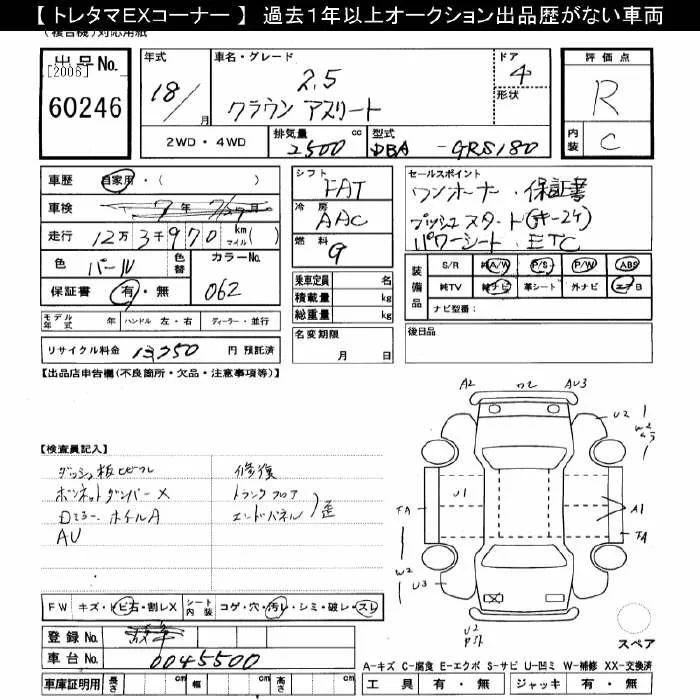 【 トレタマEXコーナー 】 過去１年以上オークション出品歴がない車両
(複合機)対応用紙
出品No.
[2006]
60246
年式
18/
月
車名・グレード
2.5
クラウン アスリート
ドア
4
形状
評価点
R
内装
C
2WD・4WD
排気量
2500 cc
型式
DBA - GRS180
車歴 自家用・( )
車検 7年 7/27月
走行 12万 3千 9 7 0 km マイル( )
色 パール
色替
カラーNo.
062
保証書 有・無
モデル年式 年 ハンドル 左・右 ディーラー・並行
リサイクル料金 13250 円 預託済
シフト
FAT
冷房
AAC
燃料
G
乗車定員 名
積載量 kg
総重量 kg
名変期限
月 日
セールスポイント
ワンオーナー・保証書
プッシュスタート(キー2ケ)
パワーシート ETC
装備品
S/R 純A/W P/S P/W ABS
純TV 純ナビ 革シート 外ナビ エアB
ナビ型番:
後日品
【出品店申告欄(不良箇所・欠品・注意事項等)】
【検査員記入】
ダッシュ板ヒビワレ
ボンネットダンパーX
Dミラー ホイルA
AU
修復
トランクフロア
エンドパネル
歪
A2
AU3
U2
W2
U1
A1
FA
W2
U3
U2
FW キズ・トビ石・割レX シート内装 コゲ・穴・汚レ・シミ・破レ・スレ
登録No.
車台No. 0045500
車庫証明用 長さ cm 幅 cm 高さ cm
スペア
A-キズ C-腐食 E-エクボ S-サビ U-凹ミ W-補修 XX-交換済
工具 有・無 ジャッキ 有・無